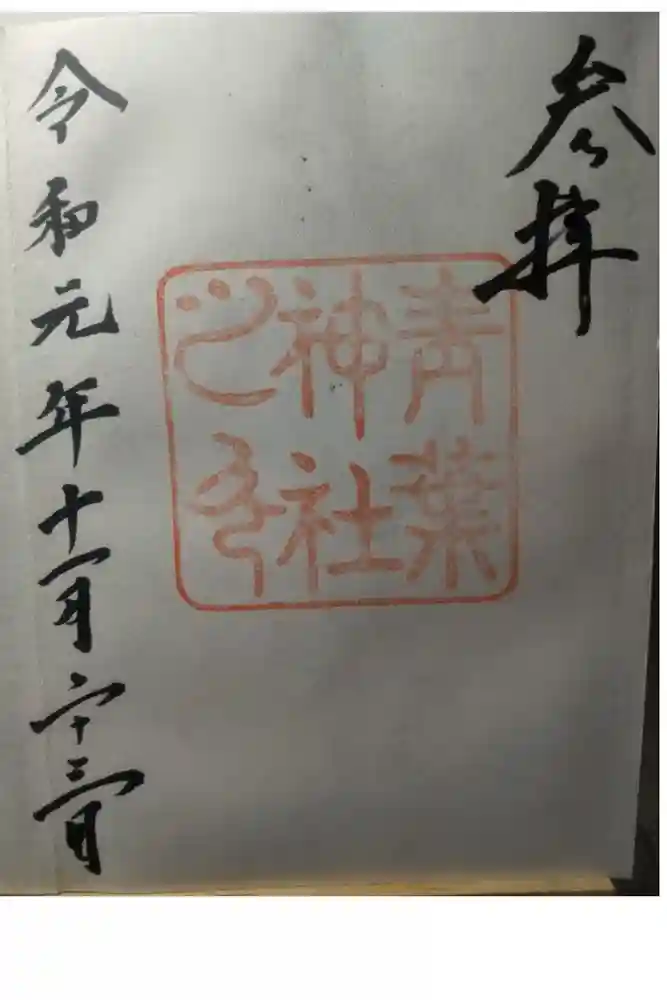 参拝
青葉
神社
之印
令和元年十一月二十三日